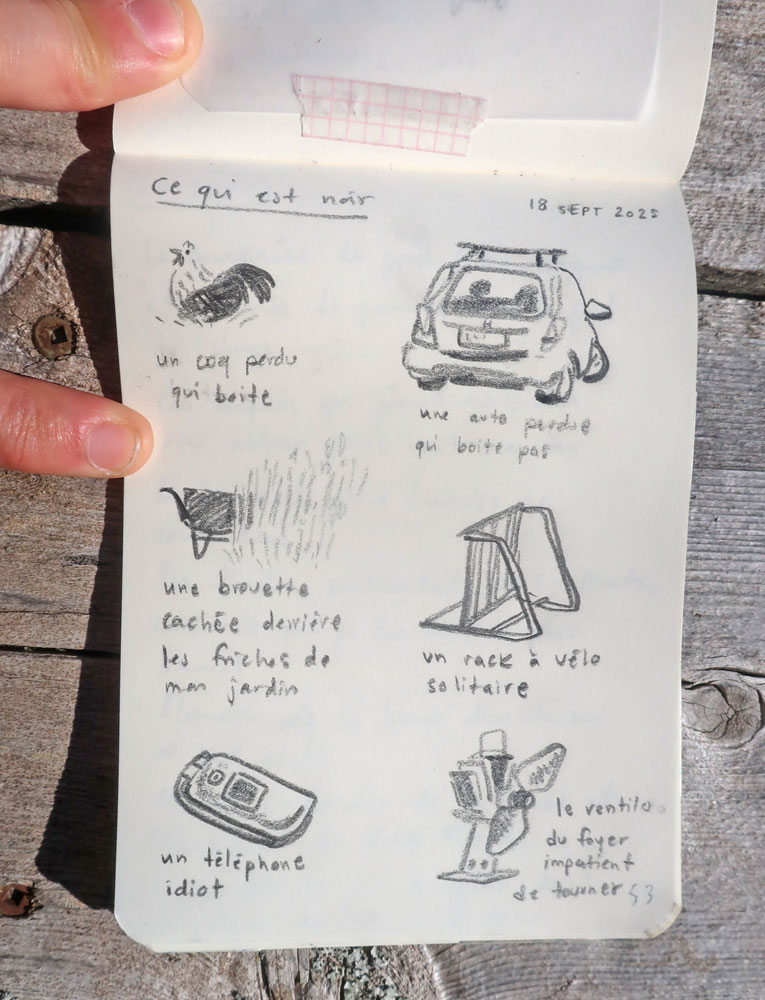 Ce qui est noir
18 SEPT 2025
un coq perdu
qui boite
une auto perdue
qui boite pas
une brouette
cachée derrière
les friches de
mon jardin
un rack à vélo
solitaire
un téléphone
idiot
le ventilo
du foyer
impatient
de tourner
53